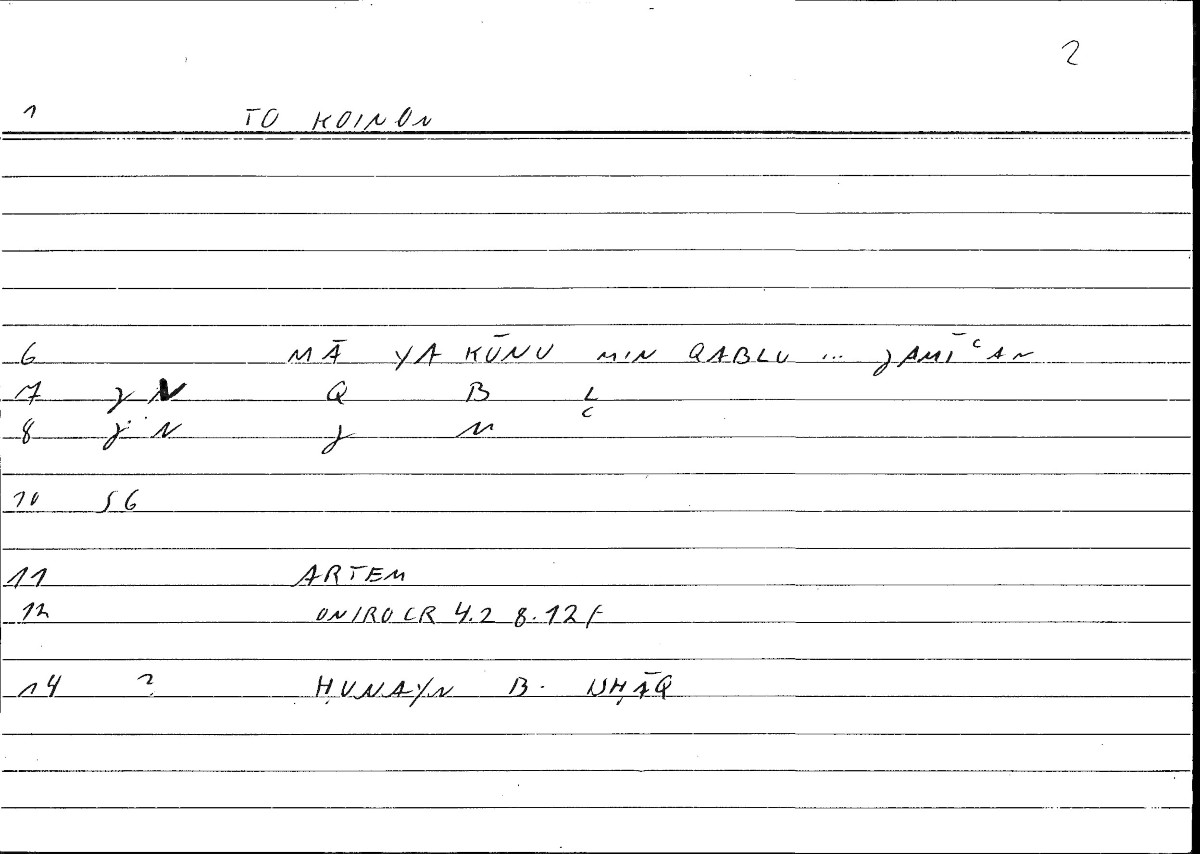 2
1 TO KOINON
6 MĀ YA KŪNU MIN QABLU ... JAMĪʿAN
7 J N Q B L
8 J N J M ʿ
10 56
11 ARTEM
12 ONIROCR 4.2 8.12f
14 ? ḤUNAYN B. ISḤĀQ